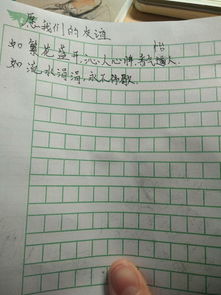 愿我们的友谊
如繁花盛开,沁人心怡,香气逼人
如流水涓涓,永不停歇.